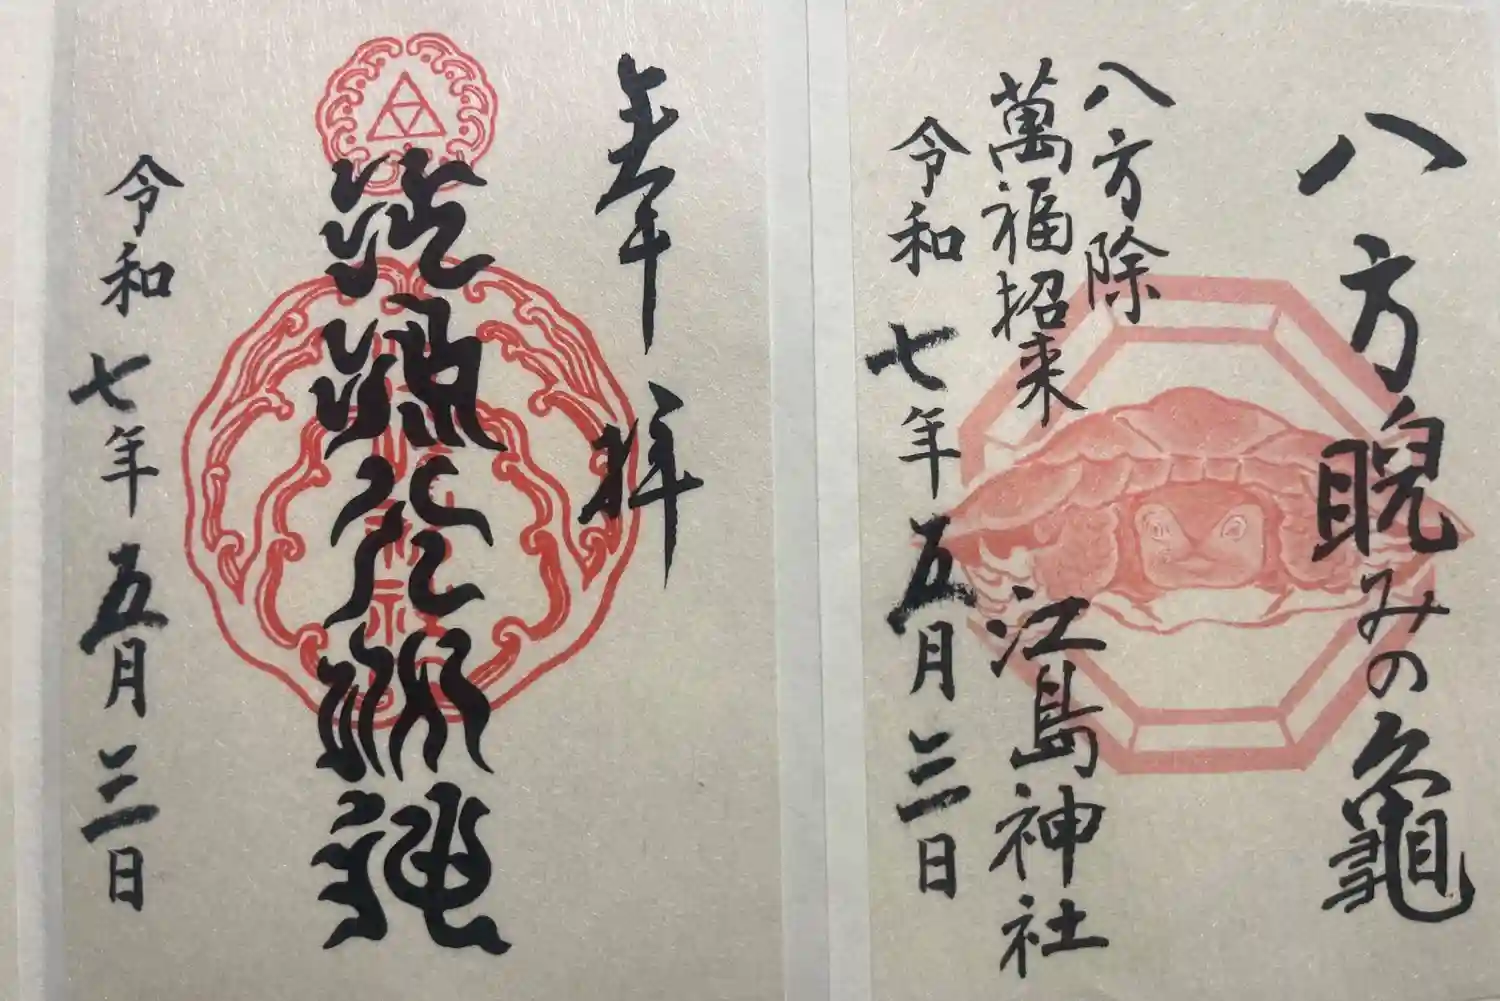 八方睨みの龜
八方除
萬福招来
江島神社
令和七年五月三日
奉拝
令和七年五月三日